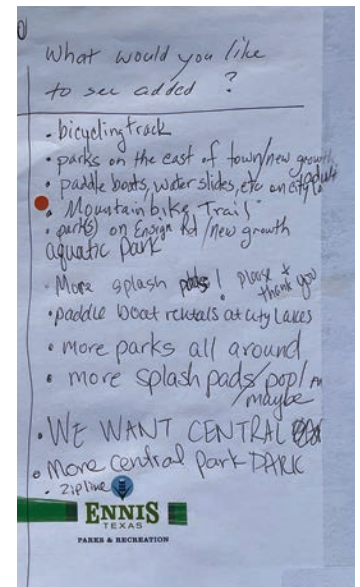 What would you like
to see added ?
• bicycling track
• parks on the east of town/new growth
• paddle boats, water slides, etc on city
• Mountain bike Trail
• park(s) on Ensign Rd /new growth
aquatic park
• More splash pads! please & thank you
• paddle boat rentals at city lakes
• more parks all around
• more splash pads/pool
maybe
• WE WANT CENTRAL
• More central park PARK
• zipline
ENNIS
TEXAS
PARKS & RECREATION